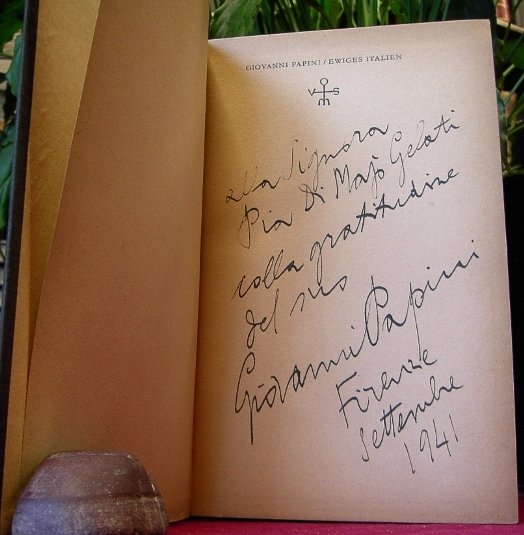 GIOVANNI PAPINI / EWIGES ITALIEN
V S
alla Signora
Pia Di Majo Gelati
colla gratitudine
del suo
Giovanni Papini
Firenze
settembre
1941